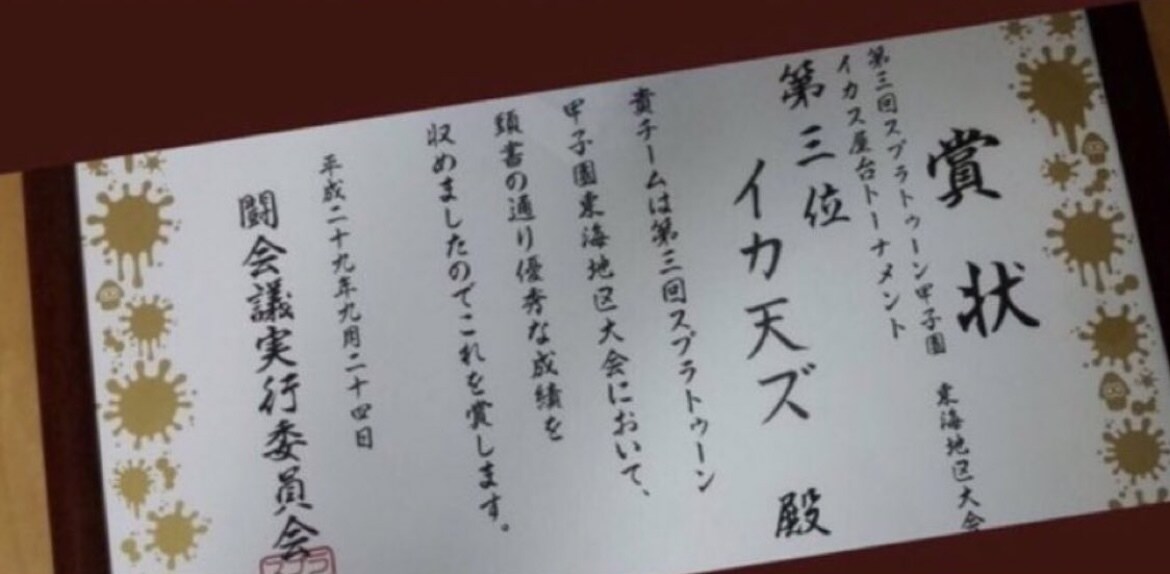 賞状
第三回スプラトゥーン甲子園 東海地区大会
イカス屋台トーナメント
第三位
イカ天ズ 殿
貴チームは第三回スプラトゥーン
甲子園東海地区大会において、
頭書の通り優秀な成績を
収めましたのでこれを賞します。
平成二十九年九月二十四日
闘会議実行委員会
スプラ